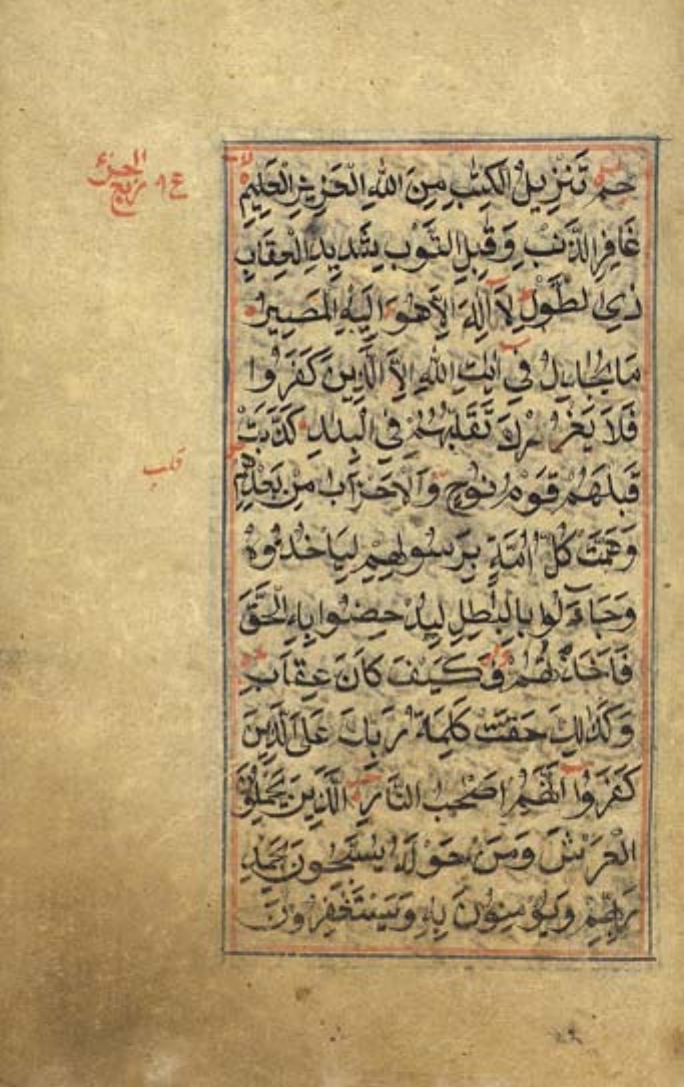 حٰمٓ تَنْزِيلُ الْكِتٰبِ مِنَ اللّٰهِ الْعَزِيزِ الْعَلِيمِ
غَافِرِ الذَّنْبِ وَقَبِلِ التَّوْبِ شَدِيدِ الْعِقَابِ
ذِي الطَّوْلِ لَا إِلٰهَ إِلَّا هُوَ إِلَيْهِ الْمَصِيرُ
مَا يُجَادِلُ فِي اٰيٰتِ اللّٰهِ إِلَّا الَّذِينَ كَفَرُوا
فَلَا يَغْرُرْكَ تَقَلُّبُهُمْ فِي الْبِلٰدِ كَذَّبَتْ
قَبْلَهُمْ قَوْمُ نُوحٍ وَالْأَحْزَابُ مِنْ بَعْدِهِمْ
وَهَمَّتْ كُلُّ أُمَّةٍ بِرَسُولِهِمْ لِيَأْخُذُوهُ
وَجَادَلُوا بِالْبٰطِلِ لِيُدْحِضُوا بِهِ الْحَقَّ
فَأَخَذْتُهُمْ فَكَيْفَ كَانَ عِقَابِ
وَكَذٰلِكَ حَقَّتْ كَلِمَةُ رَبِّكَ عَلَى الَّذِينَ
كَفَرُوا أَنَّهُمْ أَصْحٰبُ النَّارِ الَّذِينَ يَحْمِلُونَ
الْعَرْشَ وَمَنْ حَوْلَهُ يُسَبِّحُونَ بِحَمْدِ
رَبِّهِمْ وَيُؤْمِنُونَ بِهِ وَيَسْتَغْفِرُونَ
ربع الجزء
قلب